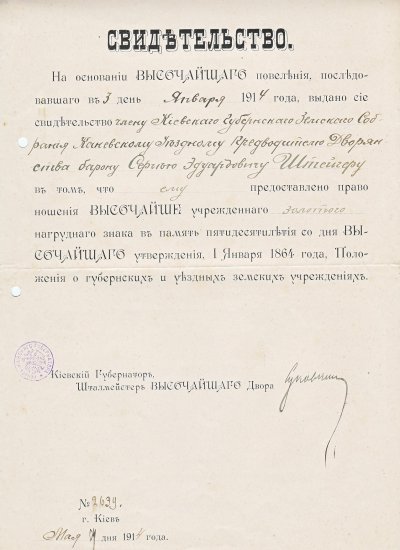 СВИДѢТЕЛЬСТВО.
На основаніи ВЫСОЧАЙШАГО повелѣнія, послѣдо-
вавшаго въ 3 день Января 1914 года, выдано сіе
свидѣтельство члену Кіевскаго Губернскаго Земскаго Соб-
ранія Каневскому Уѣздному Предводителю Дворян-
ства барону Сергѣю Эдуардовичу Штейгеру
въ томъ, что ему предоставлено право
ношенія ВЫСОЧАЙШЕ учрежденнаго золотого
нагруднаго знака въ память пятидесятилѣтія со дня ВЫ-
СОЧАЙШАГО утвержденія, 1 Января 1864 года, Поло-
женія о губернскихъ и уѣздныхъ земскихъ учрежденіяхъ.
Кіевскій Губернаторъ,
Шталмейстеръ ВЫСОЧАЙШАГО Двора
№ 2639.
г. Кіевъ
Мая дня 1914 года.